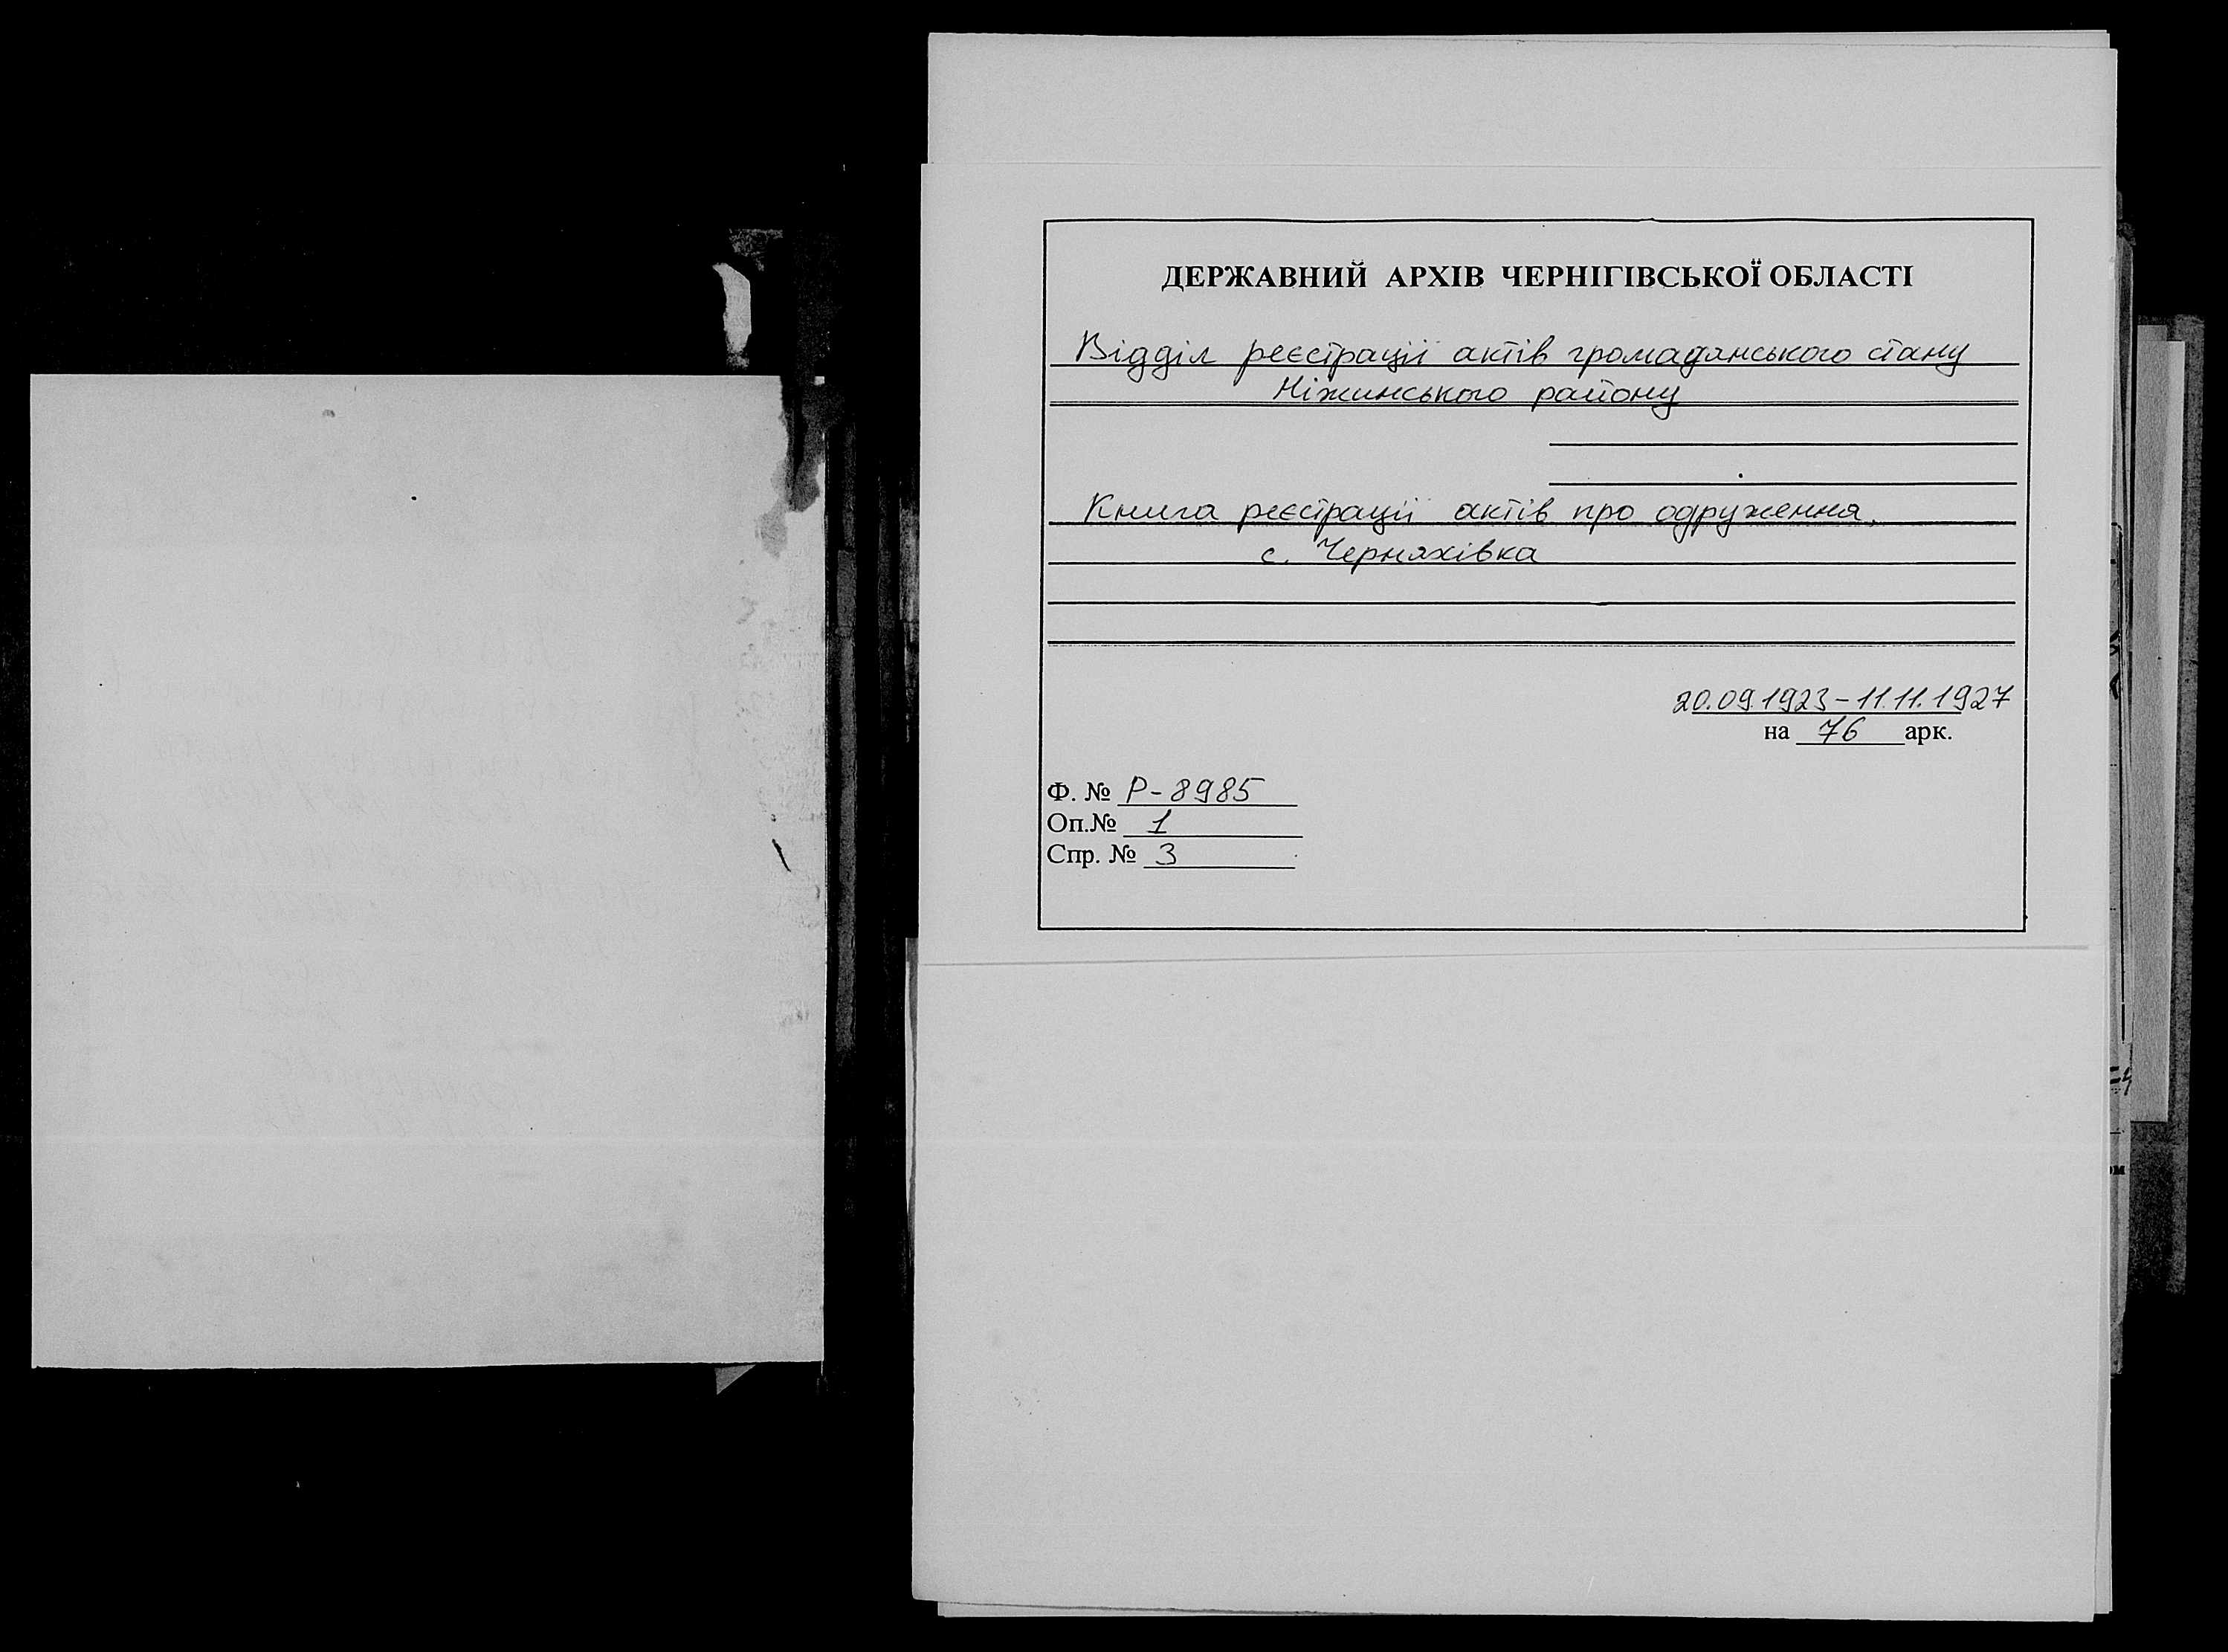 ДЕРЖАВНИЙ АРХІВ ЧЕРНІГІВСЬКОЇ ОБЛАСТІ
Відділ реєстрації актів громадянського стану
Ніжинського району
Книга реєстрації актів про одруження.
с. Черняхівка
20.09.1923 – 11.11.1927
на 76 арк.
Ф. № Р-8985
Оп.№ 1
Спр. № 3